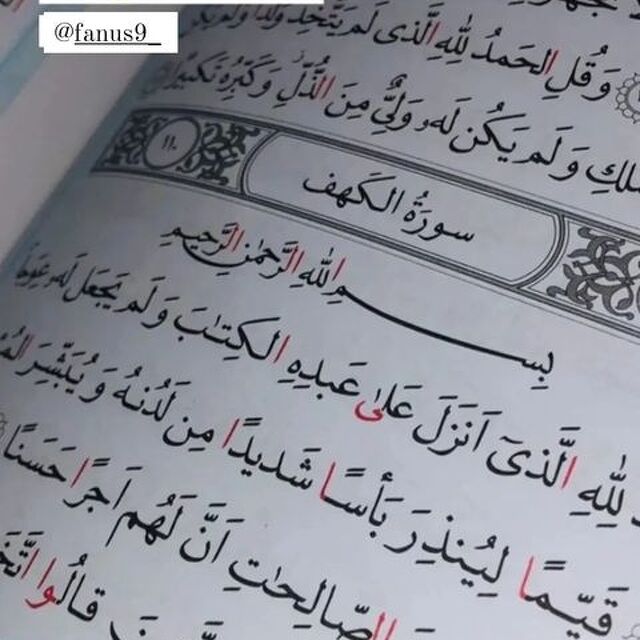 @fanus9_
وَ قُلِ الحَمدُ لِلّٰهِ الَّذى لَم يَتَّخِذ وَلَدًا وَ لَم يَكُن
وَ لَم يَكُن لَه‌ۥ وَلِىٌّ مِنَ الذُّلِّ وَ كَبِّرهُ تَكبيرًا
١١٠
سورَةُ الكَهف
بِسمِ اللّٰهِ الرَّحمٰنِ الرَّحيمِ
لِلّٰهِ الَّذىٓ اَنزَلَ عَلىٰ عَبدِهِ الكِتٰبَ وَ لَم يَجعَل لَه‌ۥ عِوَجًا
قَيِّمًا لِيُنذِرَ بَأسًا شَديدًا مِن لَدُنهُ وَ يُبَشِّرَ
الصّالِحٰتِ اَنَّ لَهُم اَجرًا حَسَنًا
قالُوا